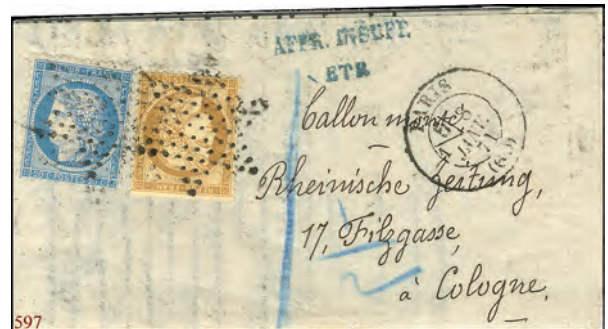 AFFR. INSUFF.
ETR
PARIS
JANV.
71
(60)
Ballon monté
Rheinische Zeitung,
17, Filzgasse,
à Cologne.
597